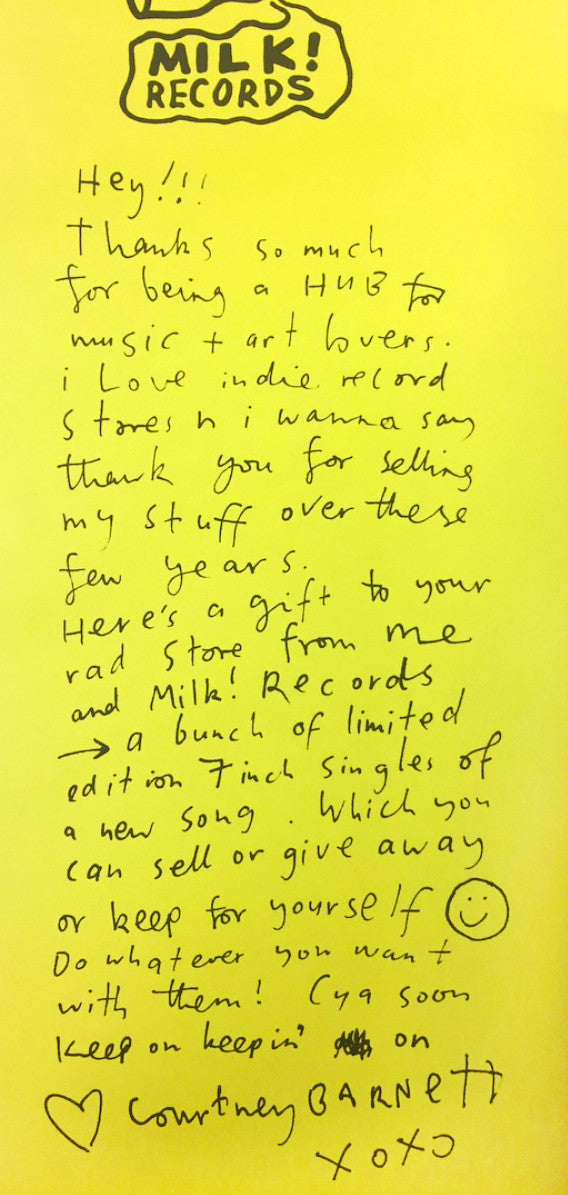 MILK!
RECORDS
Hey!!!
Thanks so much
for being a HUB for
music + art lovers.
i Love indie record
stores n i wanna say
thank you for selling
my stuff over these
few years.
Here's a gift to your
rad store from me
and Milk! Records
→ a bunch of limited
edition 7inch singles of
a new song. Which you
can sell or give away
or keep for yourself ☺
Do whatever you want
with them! Cya soon
Keep on keepin' on
♡ Courtney BARNETT
xoxo